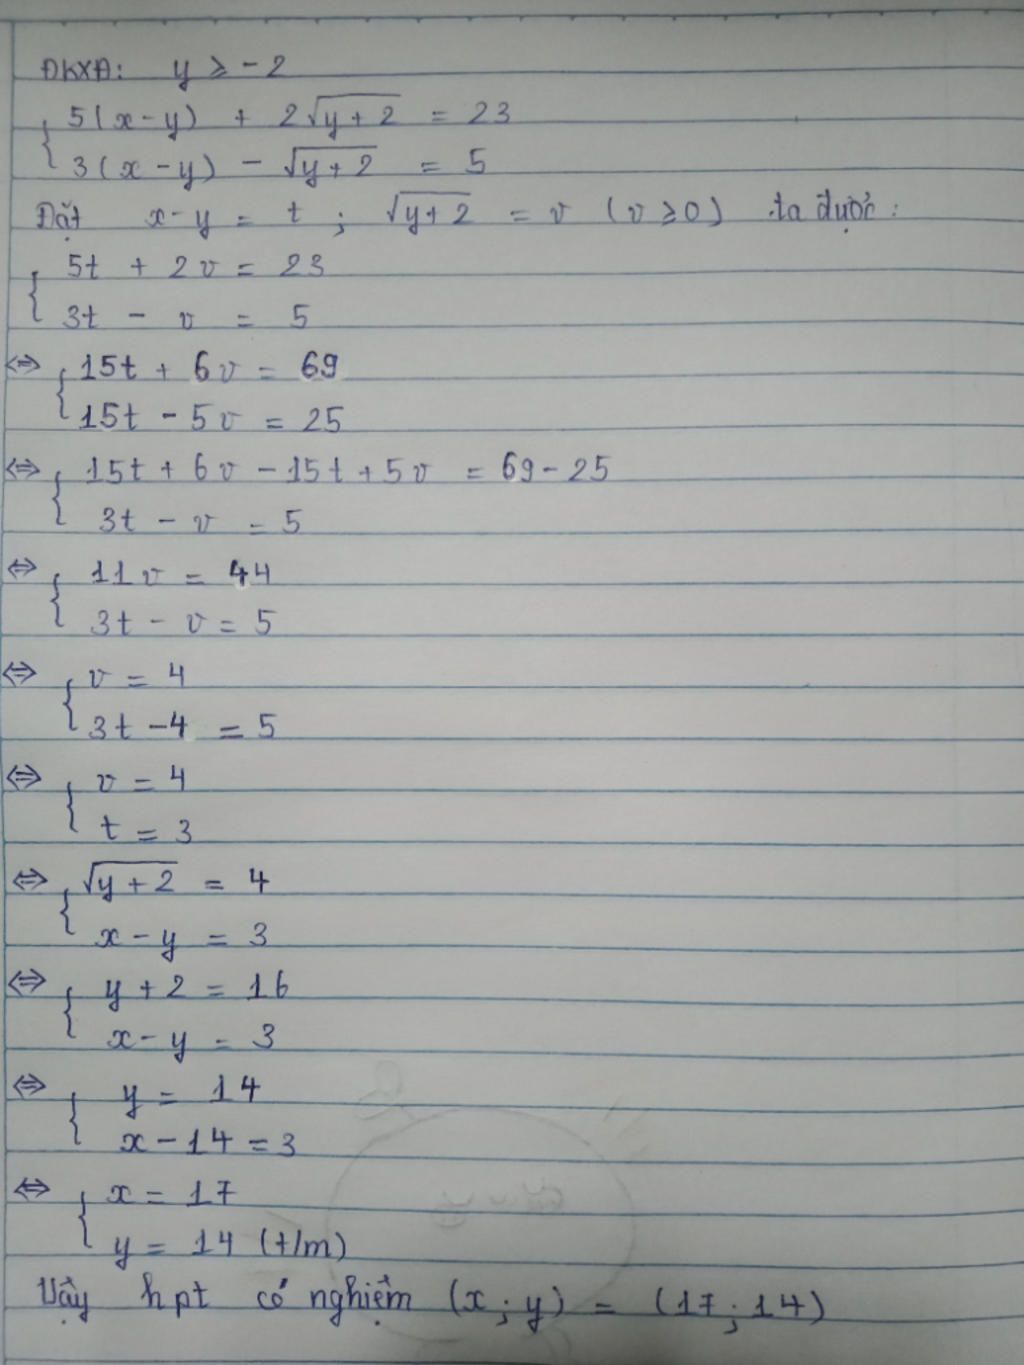 ĐKXĐ: y ≥ -2
{ 5(x-y) + 2√(y+2) = 23
3(x-y) - √(y+2) = 5
Đặt x-y = t ; √(y+2) = v (v≥0) ta được:
{ 5t + 2v = 23
3t - v = 5
⇔ { 15t + 6v = 69
15t - 5v = 25
⇔ { 15t + 6v - 15t + 5v = 69 - 25
3t - v = 5
⇔ { 11v = 44
3t - v = 5
⇔ { v = 4
3t - 4 = 5
⇔ { v = 4
t = 3
⇔ { √(y+2) = 4
x - y = 3
⇔ { y + 2 = 16
x - y = 3
⇔ { y = 14
x - 14 = 3
⇔ { x = 17
y = 14 (t/m)
Vậy hpt có nghiệm (x ; y) = (17 ; 14)